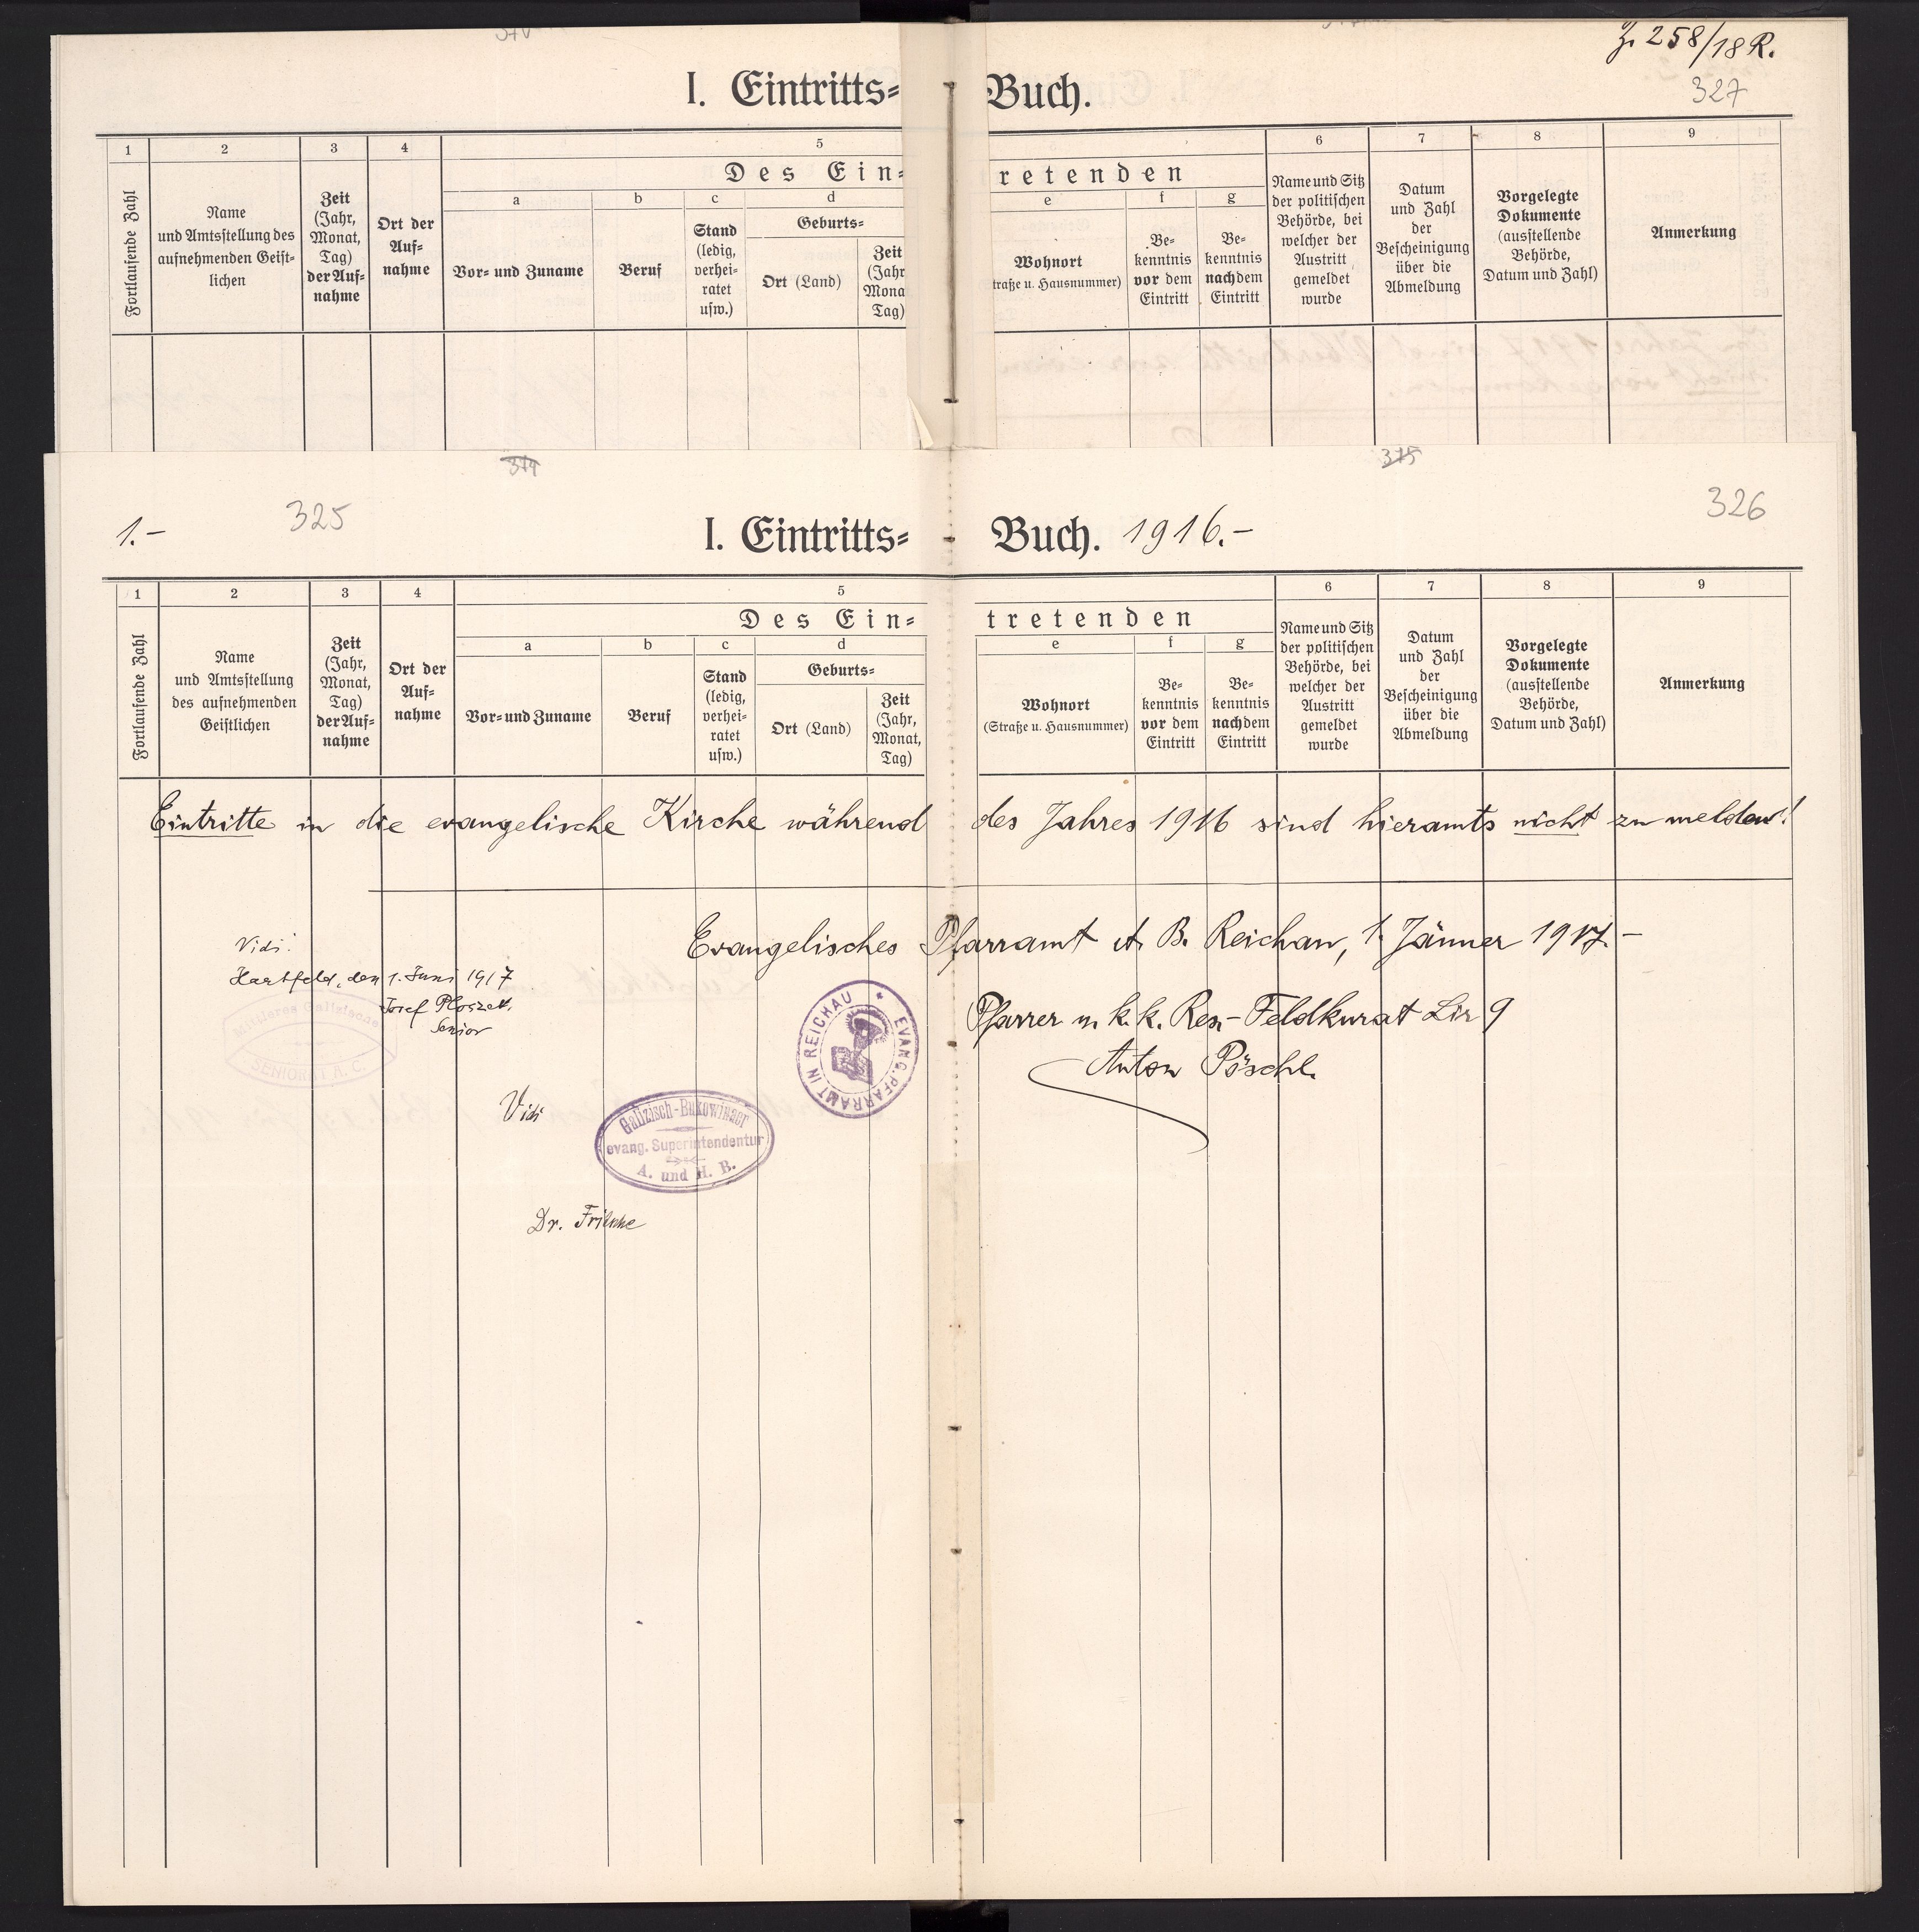 Z. 258/18 R.
327
I. Eintritts- Buch.
1 2 3 4 5 6 7 8 9
Des Ein- retenden
a b c d e f g
Fortlaufende Zahl
Name
und Amtsstellung des
aufnehmenden Geist-
lichen
Zeit
(Jahr,
Monat,
Tag)
der Auf-
nahme
Ort der
Auf-
nahme
Vor- und Zuname
Beruf
Stand
(ledig,
verhei-
ratet
usw.)
Geburts-
Ort (Land)
Zeit
(Jahr
Mona
Tag)
Wohnort
traße u. Hausnummer)
Be-
kenntnis
vor dem
Eintritt
Be-
kenntnis
nach dem
Eintritt
Name und Sitz
der politischen
Behörde, bei
welcher der
Austritt
gemeldet
wurde
Datum
und Zahl
der
Bescheinigung
über die
Abmeldung
Vorgelegte
Dokumente
(ausstellende
Behörde,
Datum und Zahl)
Anmerkung
374 375
1.- 325 326
I. Eintritts- Buch. 1916.-
1 2 3 4 5 6 7 8 9
Des Ein- tretenden
a b c d e f g
Fortlaufende Zahl
Name
und Amtsstellung
des aufnehmenden
Geistlichen
Zeit
(Jahr,
Monat,
Tag)
der Auf-
nahme
Ort der
Auf-
nahme
Vor- und Zuname
Beruf
Stand
(ledig,
verhei-
ratet
usw.)
Geburts-
Ort (Land)
Zeit
(Jahr,
Monat,
Tag)
Wohnort
(Straße u. Hausnummer)
Be-
kenntnis
vor dem
Eintritt
Be-
kenntnis
nach dem
Eintritt
Name und Sitz
der politischen
Behörde, bei
welcher der
Austritt
gemeldet
wurde
Datum
und Zahl
der
Bescheinigung
über die
Abmeldung
Vorgelegte
Dokumente
(ausstellende
Behörde,
Datum und Zahl)
Anmerkung
Eintritte in die evangelische Kirche während des Jahres 1916 sind hieramts nicht zu melden!
Evangelisches Pfarramt A. B. Reichau, 1. Jänner 1917.-
Vidi:
Hartfeld, den 1. Juni 1917
Josef Ploszek,
Senior
Mittleres Galizisches
SENIORAT A. C.
EVANG. PFARRAMT IN REICHAU
Pfarrer u. k. k. Res.- Feldkurat Lir 9
Anton Pöschl.
Vidi
Galizisch-Bukowinaer
evang. Superintendentur
A. und H. B.
Dr. Fritsche